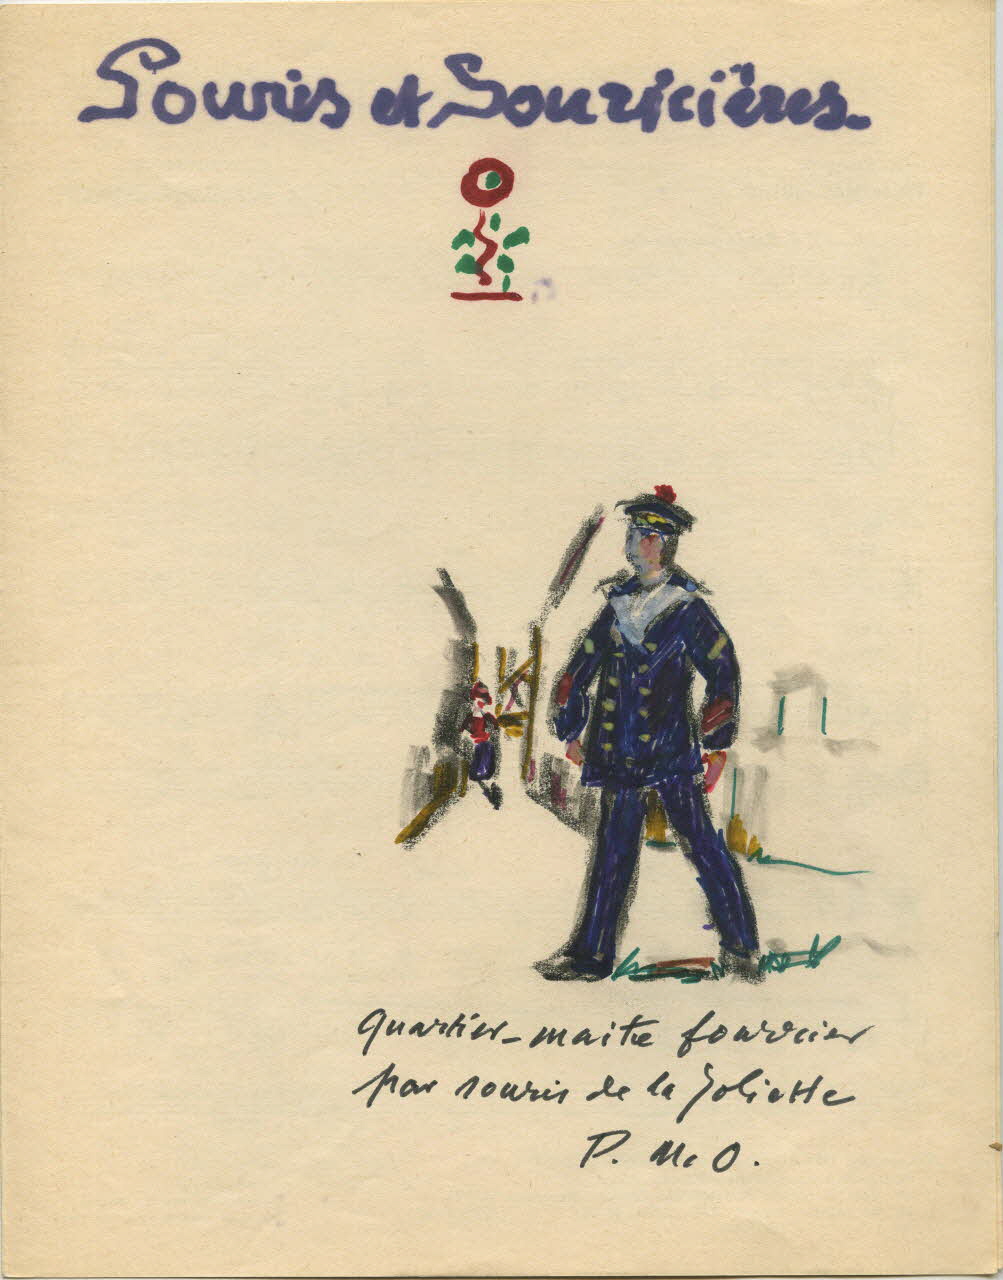 Souris et Souricières.
quartier-maitre fourrier
par souris de la Joliette
P. M. O.